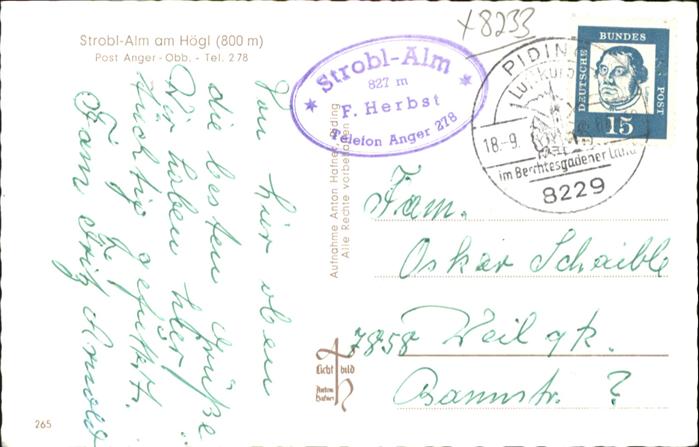 Strobl-Alm am Högl (800 m)
Post Anger - Obb. - Tel. 278
x8233
Strobl-Alm
827 m
F. Herbst
Telefon Anger 278
DEUTSCHE BUNDES POST
15
PIDING
Luftkurort
18.-9.
im Berchtesgadener Land
8229
Von hier oben
die besten Grüße
Wir haben hier
tüchtig gefuttert.
Fam. Fritz Arnold
Aufnahme Anton Hafner, Piding
Alle Rechte vorbehalten
Fam.
Oskar Schaible
7858 Weil a/Rh.
Bannstr. 7
Lichtbild
Anton
Hafner
265